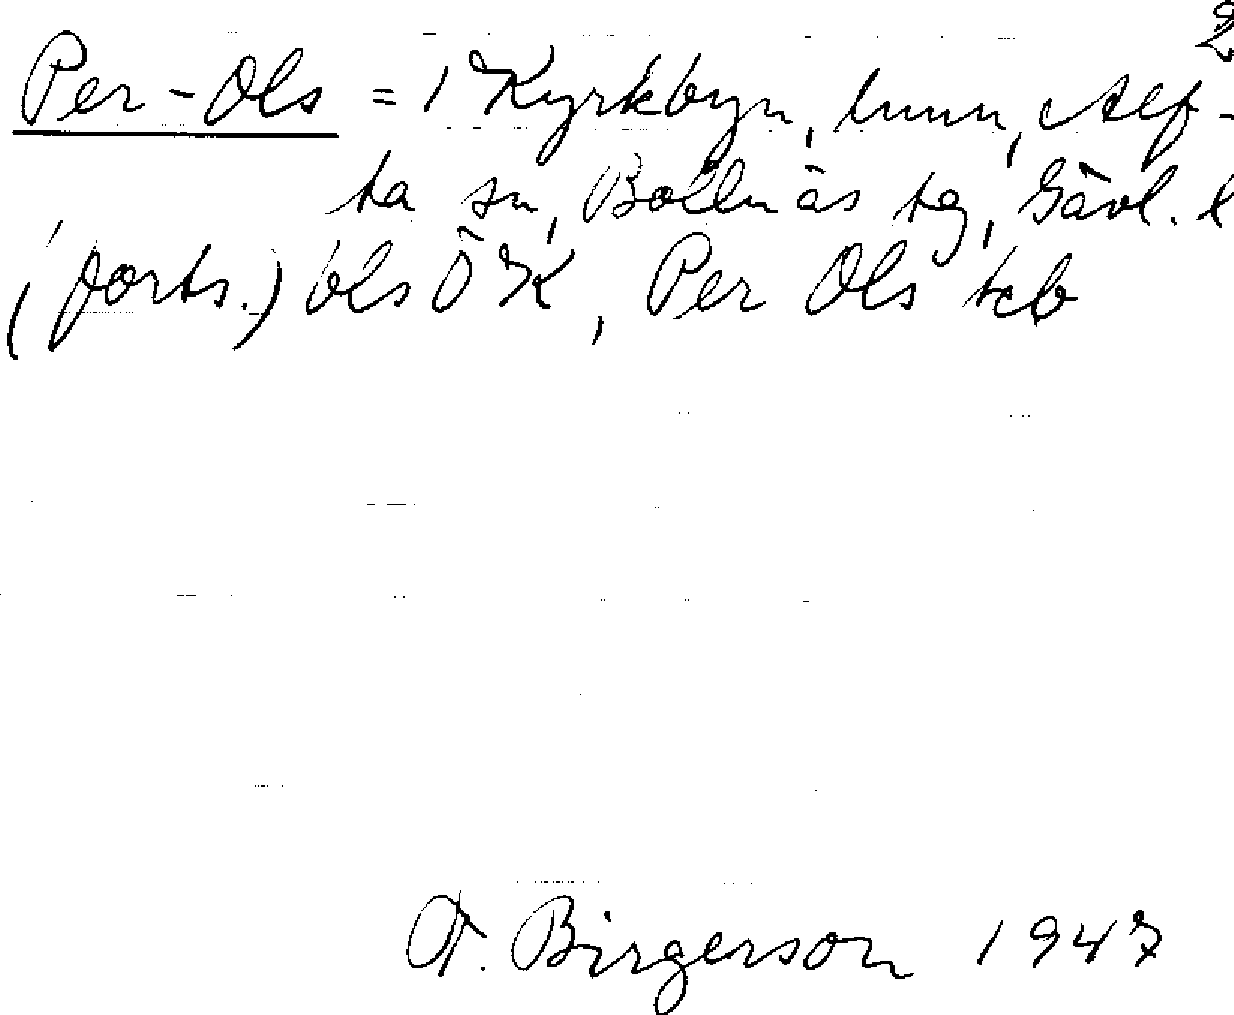 2
Per-Ols = 1 Kyrkbyn, hmn, Alf-
ta sn, Bollnäs tg, Gävl. l
(forts.) Ols ÖK, Per Ols tcb
A. Birgerson 1947